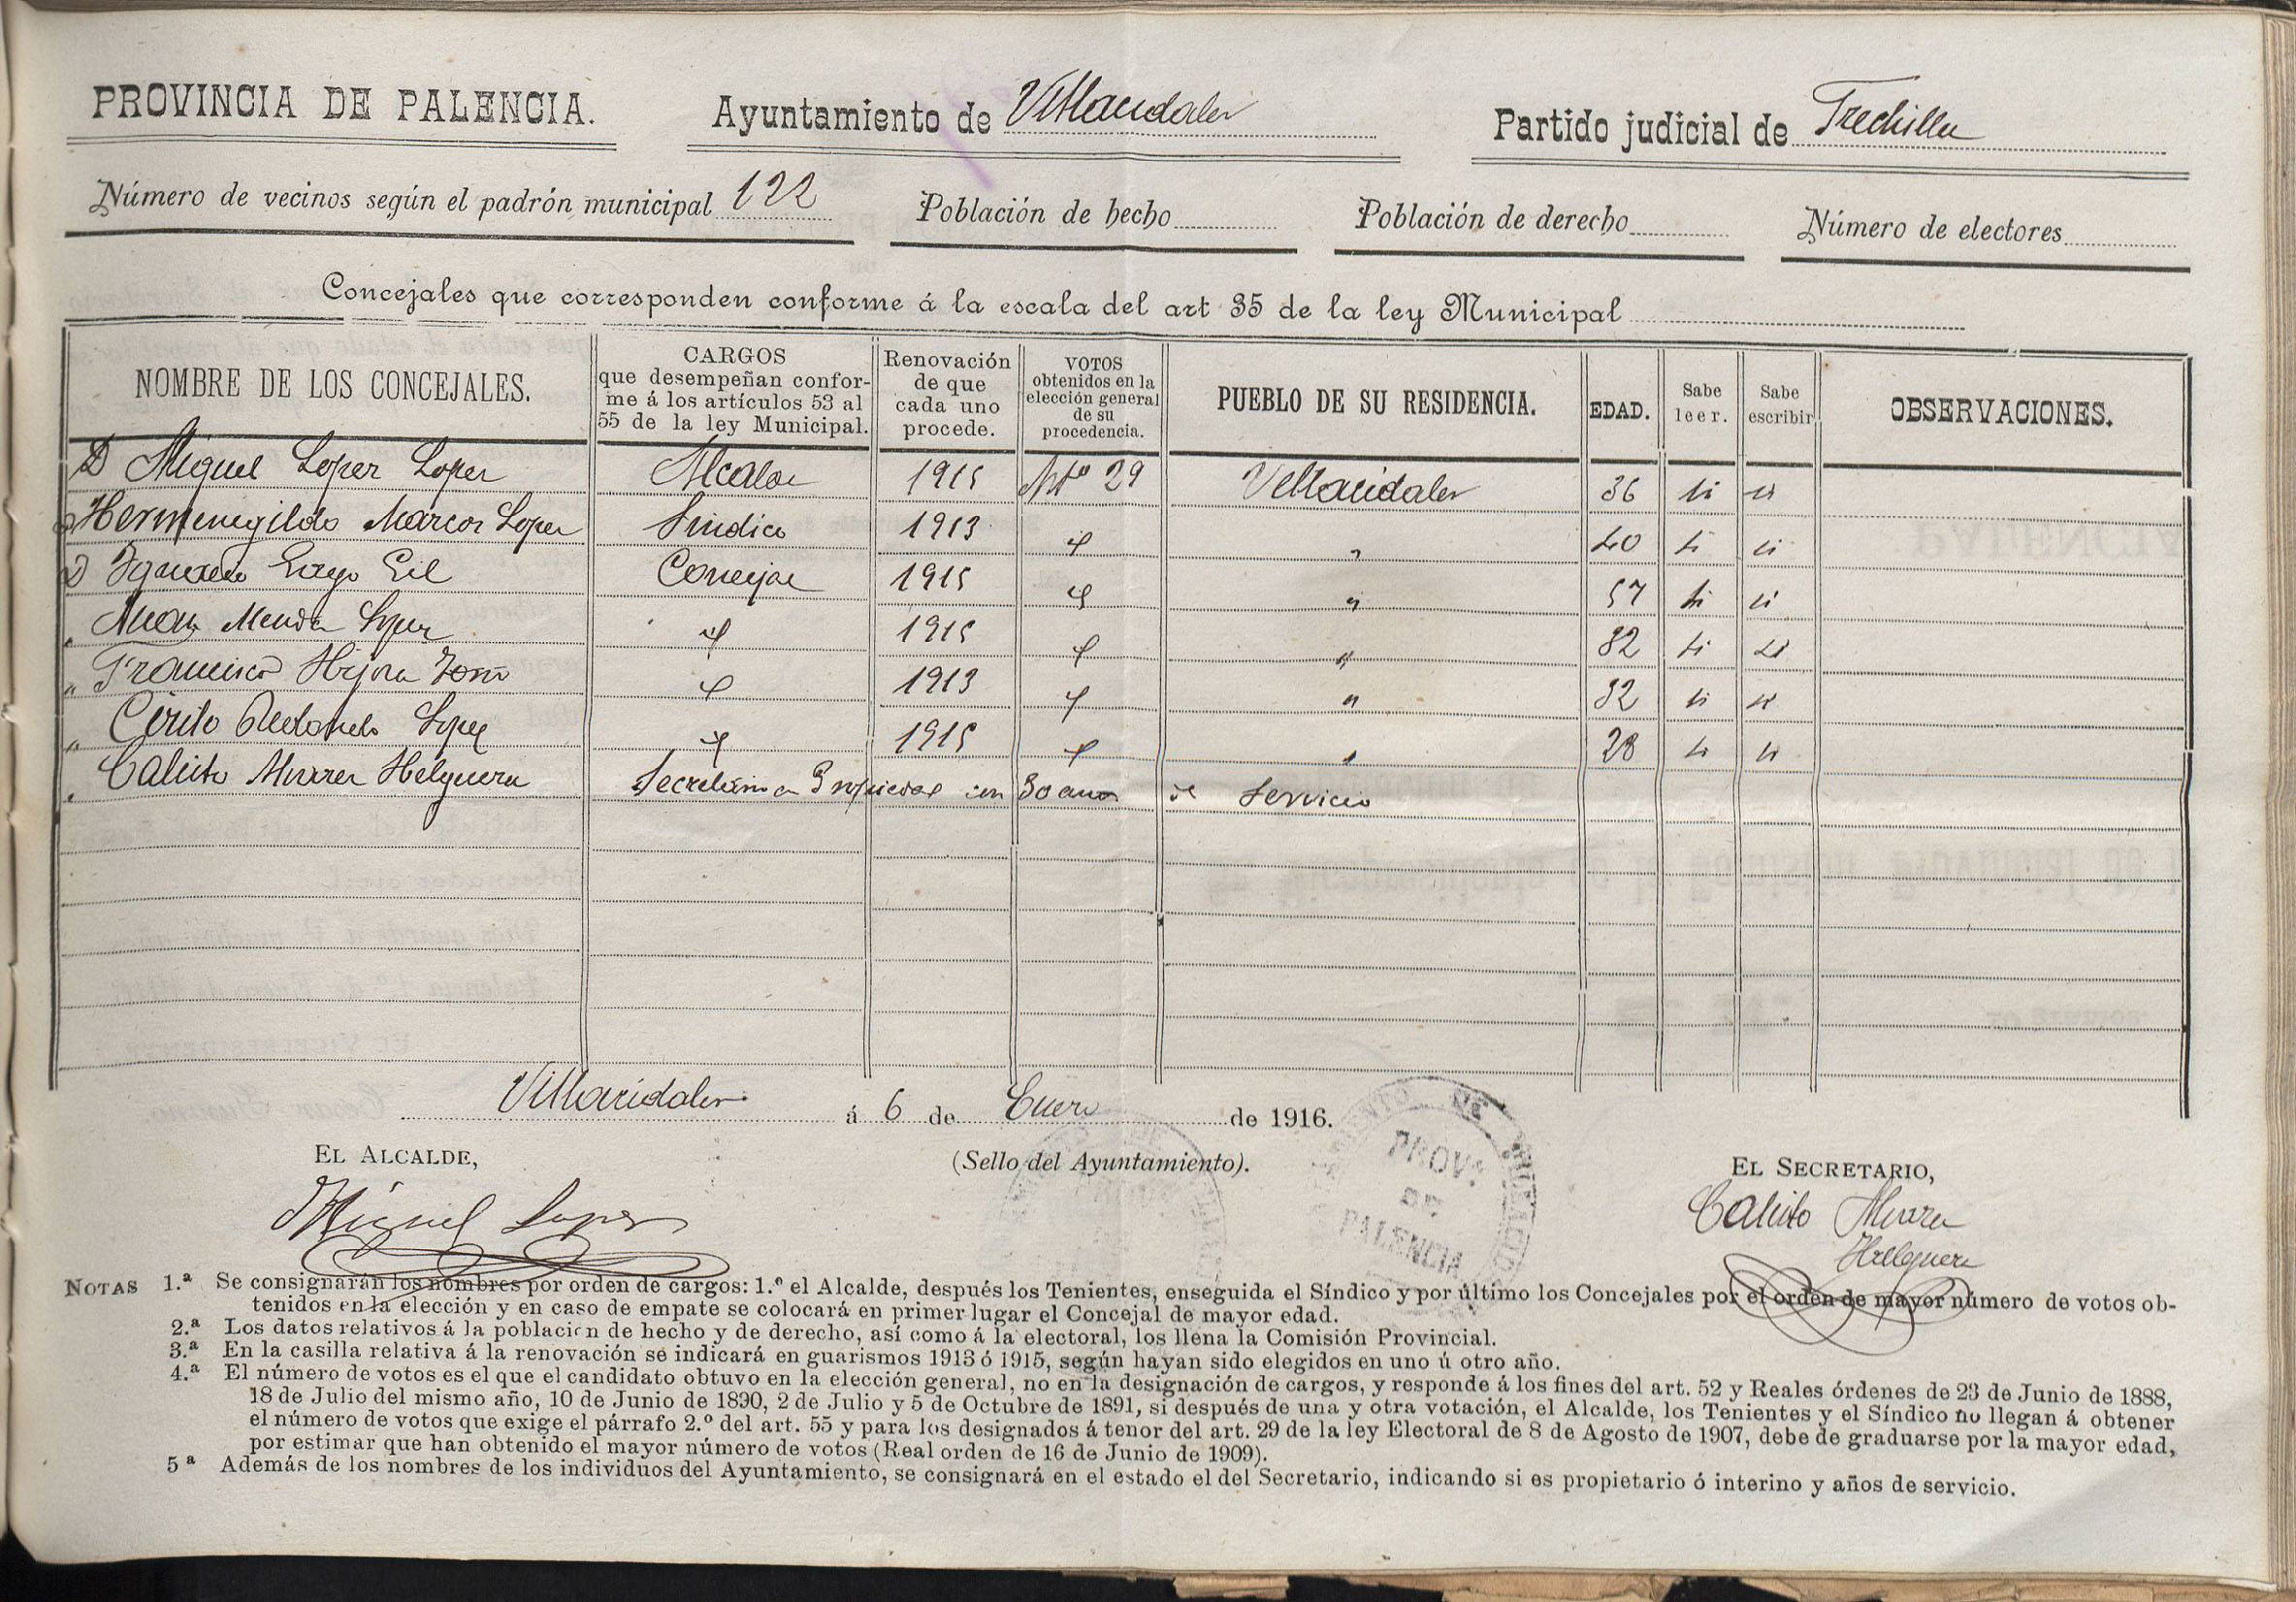 PROVINCIA DE PALENCIA. Ayuntamiento de Villacidaler Partido judicial de Frechilla
Número de vecinos según el padrón municipal 122 Población de hecho Población de derecho Número de electores
Concejales que corresponden conforme á la escala del art 35 de la ley Municipal
NOMBRE DE LOS CONCEJALES.
CARGOS
que desempeñan confor-
me á los artículos 53 al
55 de la ley Municipal.
Renovación
de que
cada uno
procede.
VOTOS
obtenidos en la
elección general
de su
procedencia.
PUEBLO DE SU RESIDENCIA.
EDAD.
Sabe
leer.
Sabe
escribir
OBSERVACIONES.
D Miguel Lopez Lopez Alcalde 1915 Artº 29 Villacidaler 36 si si
D Hermenegildo Marcos Lopez Sindico 1913 " " 40 si si
D Gil Concejal 1915 " " 57 si si
" Juan Lopez " 1915 " " 32 si si
" Francisco " 1913 " " 32 si si
" Cirilo Redondo Lopez " 1915 " " 28 si si
" Calisto Alvarez Helguera Secretario en Propiedad con 30 años de Servicio
Villacidaler á 6 de Enero de 1916.
EL ALCALDE,
(Sello del Ayuntamiento).
EL SECRETARIO,
Miguel Lopez
Calisto Alvarez
Helguera
PROV.
DE
PALENCIA
NOTAS 1.ª Se consignarán los nombres por orden de cargos: 1.º el Alcalde, después los Tenientes, enseguida el Síndico y por último los Concejales por el orden de mayor número de votos ob-
tenidos en la elección y en caso de empate se colocará en primer lugar el Concejal de mayor edad.
2.ª Los datos relativos á la población de hecho y de derecho, así como á la electoral, los llena la Comisión Provincial.
3.ª En la casilla relativa á la renovación se indicará en guarismos 1913 ó 1915, según hayan sido elegidos en uno ú otro año.
4.ª El número de votos es el que el candidato obtuvo en la elección general, no en la designación de cargos, y responde á los fines del art. 52 y Reales órdenes de 23 de Junio de 1888,
18 de Julio del mismo año, 10 de Junio de 1890, 2 de Julio y 5 de Octubre de 1891, si después de una y otra votación, el Alcalde, los Tenientes y el Síndico no llegan á obtener
el número de votos que exige el párrafo 2.º del art. 55 y para los designados á tenor del art. 29 de la ley Electoral de 8 de Agosto de 1907, debe de graduarse por la mayor edad,
por estimar que han obtenido el mayor número de votos (Real orden de 16 de Junio de 1909).
5ª Además de los nombres de los individuos del Ayuntamiento, se consignará en el estado el del Secretario, indicando si es propietario ó interino y años de servicio.